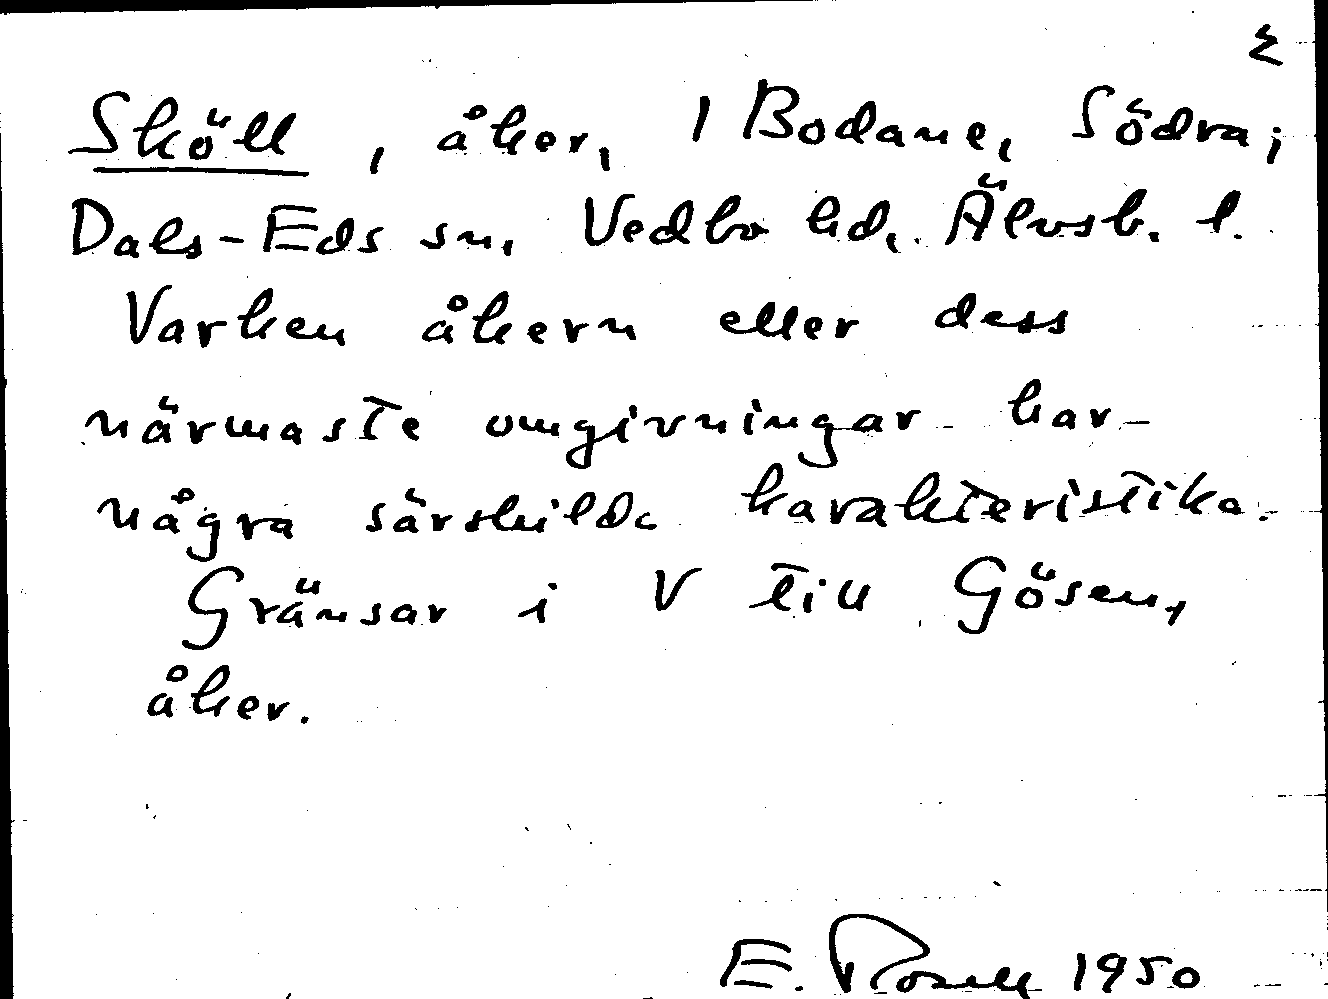 Sköll, åker, 1 Bodane, Södra;
Dals-Eds sn, Vedbo hd, Älvsb. l.
Varken åkern eller dess
närmaste omgivningar har
några särskilda karakteristika.
Gränsar i V till Gösen,
åker.
E. Rosell 1950